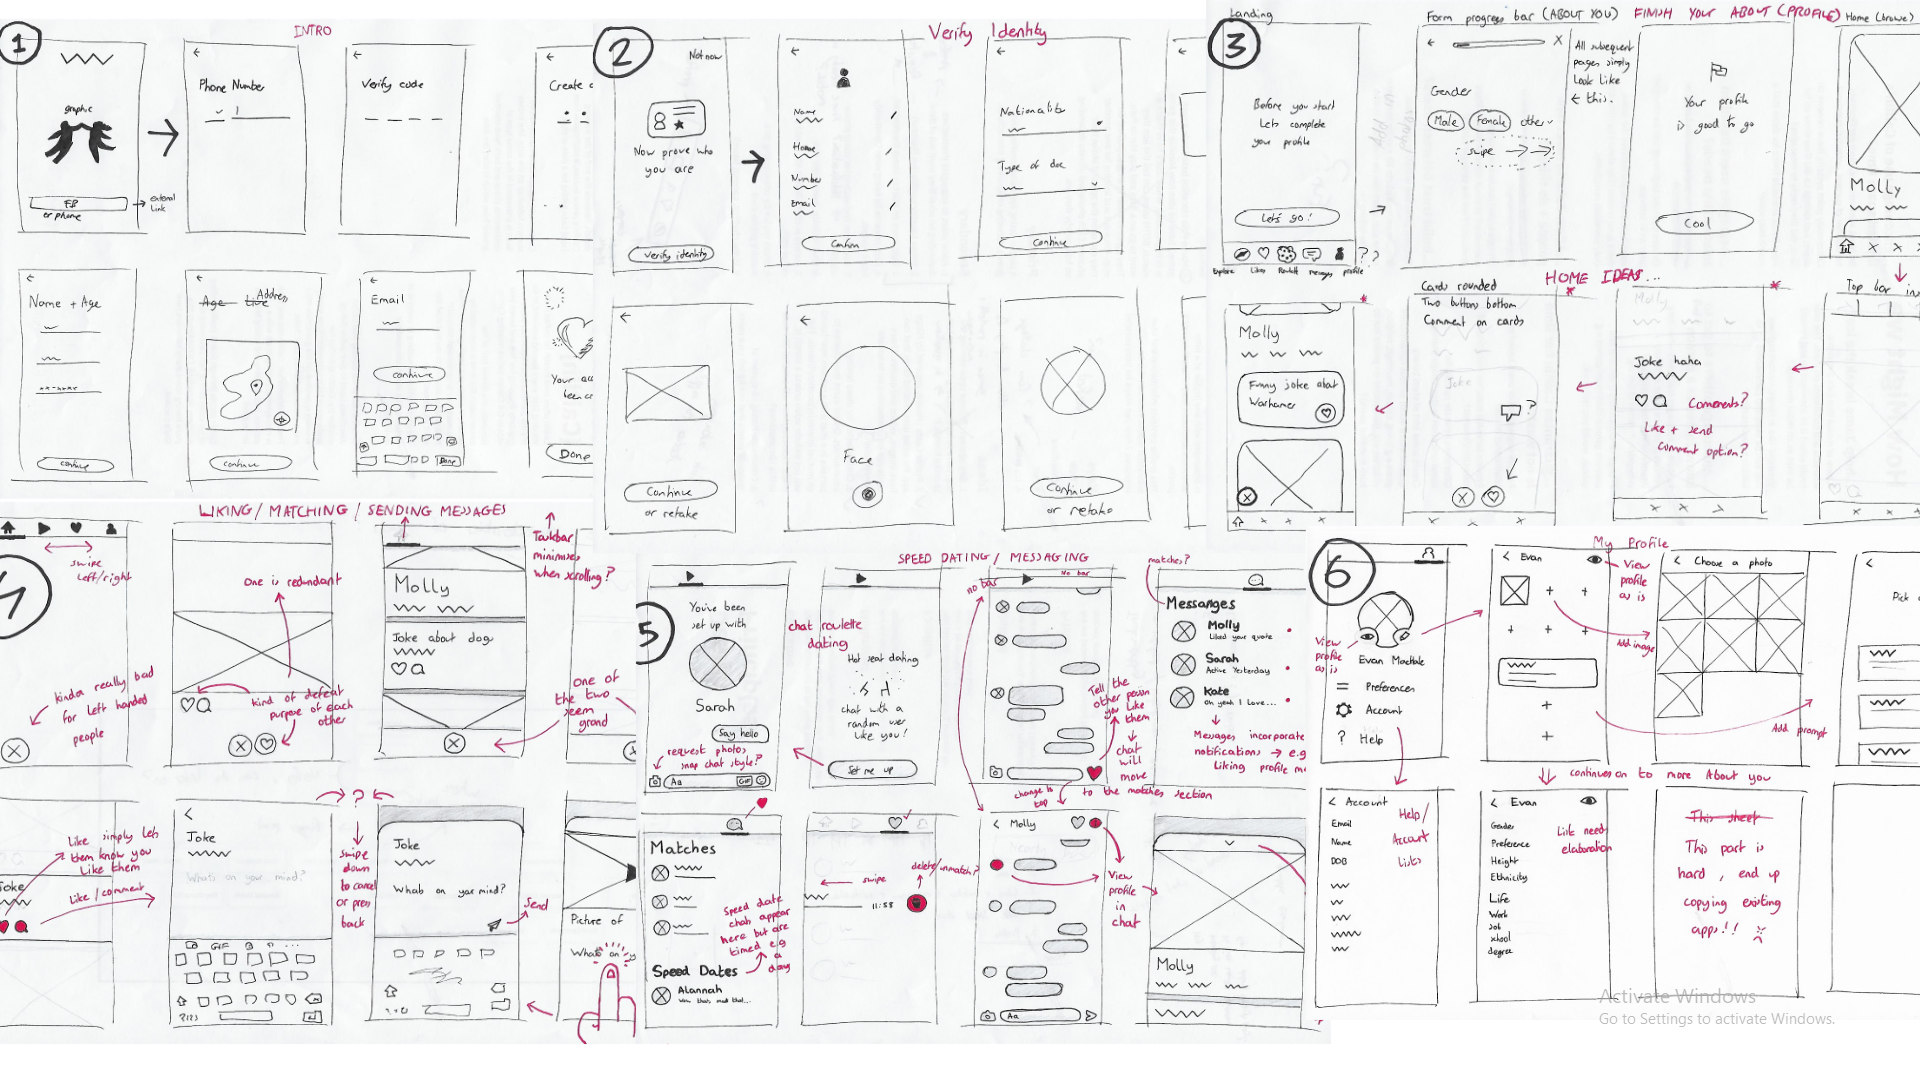 1
INTRO
graphic
FB
or phone
external
link
Phone Number
Verify code
Create a
Name + Age
continue
Age Live
Address
continue
Email
continue
Done
Your acc
been cr
Done
2
Verify Identity
Not now
Now prove who
you are
Verify identity
Name
Home
Number
Email
Confirm
Nationality
Type of doc
Continue
Continue
or retake
Face
Continue
or retake
3
Landing
Before you start
Lets complete
your profile
Let's go!
Explore
Likes
Roulette
messages
profile
??
Form progress bar (ABOUT YOU)
X
Gender
Male
Female
other
swipe
All subsequent
pages simply
Look Like
this.
FINISH YOUR ABOUT (PROFILE)
Your profile
is good to go
Cool
Home (browse)
Molly
HOME IDEAS...
Molly
Funny joke about
Warhamer
Cards rounded
Two buttons bottom
Comment on cards
Joke
?
Molly
Joke haha
Comments?
Like + send
comment option?
Top bar in
LIKING/ MATCHING / SENDING MESSAGES
swipe
left/right
kinda really bad
for left handed
people
One is redundant
kind of defeat
purpose of each
other
Molly
Joke about dog
Taskbar
minimises
when scrolling?
one of
the two
seem
grand
Joke
Like simply lets
them know you
Like them
Like / comment
Joke
Whats on your mind?
GIF
?123
?
Swipe
down
to cancel
or press
back
Joke
Whats on your mind?
Send
Picture of
Whats on y
5
SPEED DATING/ MESSAGING
You've been
set up with
Sarah
Say hello
request photos
snap chat style?
Aa
GIF
chat roulette
dating
Hot seat dating
chat with a
random user
Like you!
Set me up
no bar
No bar
Tell the
other person
you like
them
chat
will
move
to the matches section
change to
top
matches?
Messanges
Molly
Liked your quote
Sarah
Active Yesterday
Kate
Oh yeah I Love...
Messages incorporate
notifications → e.g
Liking profile m
Matches
Speed date
chats appear
here but are
timed e.g
a
day
Speed Dates
Alannah
swipe
11:58
delete/unmatch?
Molly
View
profile
in
chat
Aa
Molly
6
My Profile
View
profile
as is
Evan MacHale
Preferences
Account
? Help
Evan
View
profile
as is
Add image
Choose a photo
Add prompt
Pick a
continues on to more About you
Account
Email
Name
DOB
Help/
Account
Lists
Evan
Gender
Preference
Height
Ethnicity
Life
Work
Job
school
degree
List needs
elaboration
This sheet
This part is
hard, end up
copying existing
apps!!
Activate Windows
Go to Settings to activate Windows.